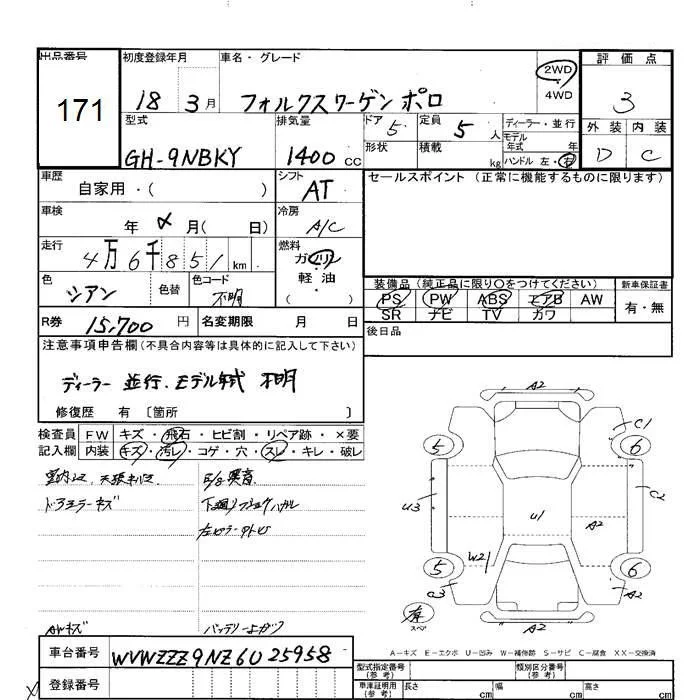 出品番号 初度登録年月 車名・グレード 2WD 評価点
171 18 3月 フォルクスワーゲン ポロ 4WD 3
型式 排気量 ドア 5 定員 5 人 ディーラー・並行 外装 内装
モデル年式 年
GH-9NBKY 1400 cc 形状 積載 kg ハンドル 左・右 D C
車歴 自家用・( ) シフト AT セールスポイント (正常に機能するものに限ります)
車検 年 月( 日) 冷房 A/C
走行 4万6千851 km 燃料 ガソリン
軽・油
( )
色 シアン 色替 色コード 不明 装備品(純正品に限り○をつけてください) 新車保証書
PS PW ABS エアB AW 有・無
SR ナビ TV カワ
R券 15,700 円 名変期限 月 日 後日品
注意事項申告欄(不具合内容等は具体的に記入して下さい)
ディーラー 並行.モデル年式 不明
修復歴 有〔箇所 〕
検査員 FW キズ・飛石・ヒビ割・リペア跡・×要
記入欄 内装 キズ・汚レ・コゲ・穴・スレ・キレ・破レ
ドアミラーキズ
A2
C1
5 6
U3 U1 A2 C2
W21
5 6
A2
A2
AWキズ バッテリー
A-キズ E-エクボ U-凹み W-補修跡 S-サビ C-腐食 XX-交換済
車台番号 WVWZZZ9NZ6U025958
登録番号 型式指定番号(参考) 類別区分番号(参考)
車庫証明用(参考) 長さ cm 幅 cm 高さ cm